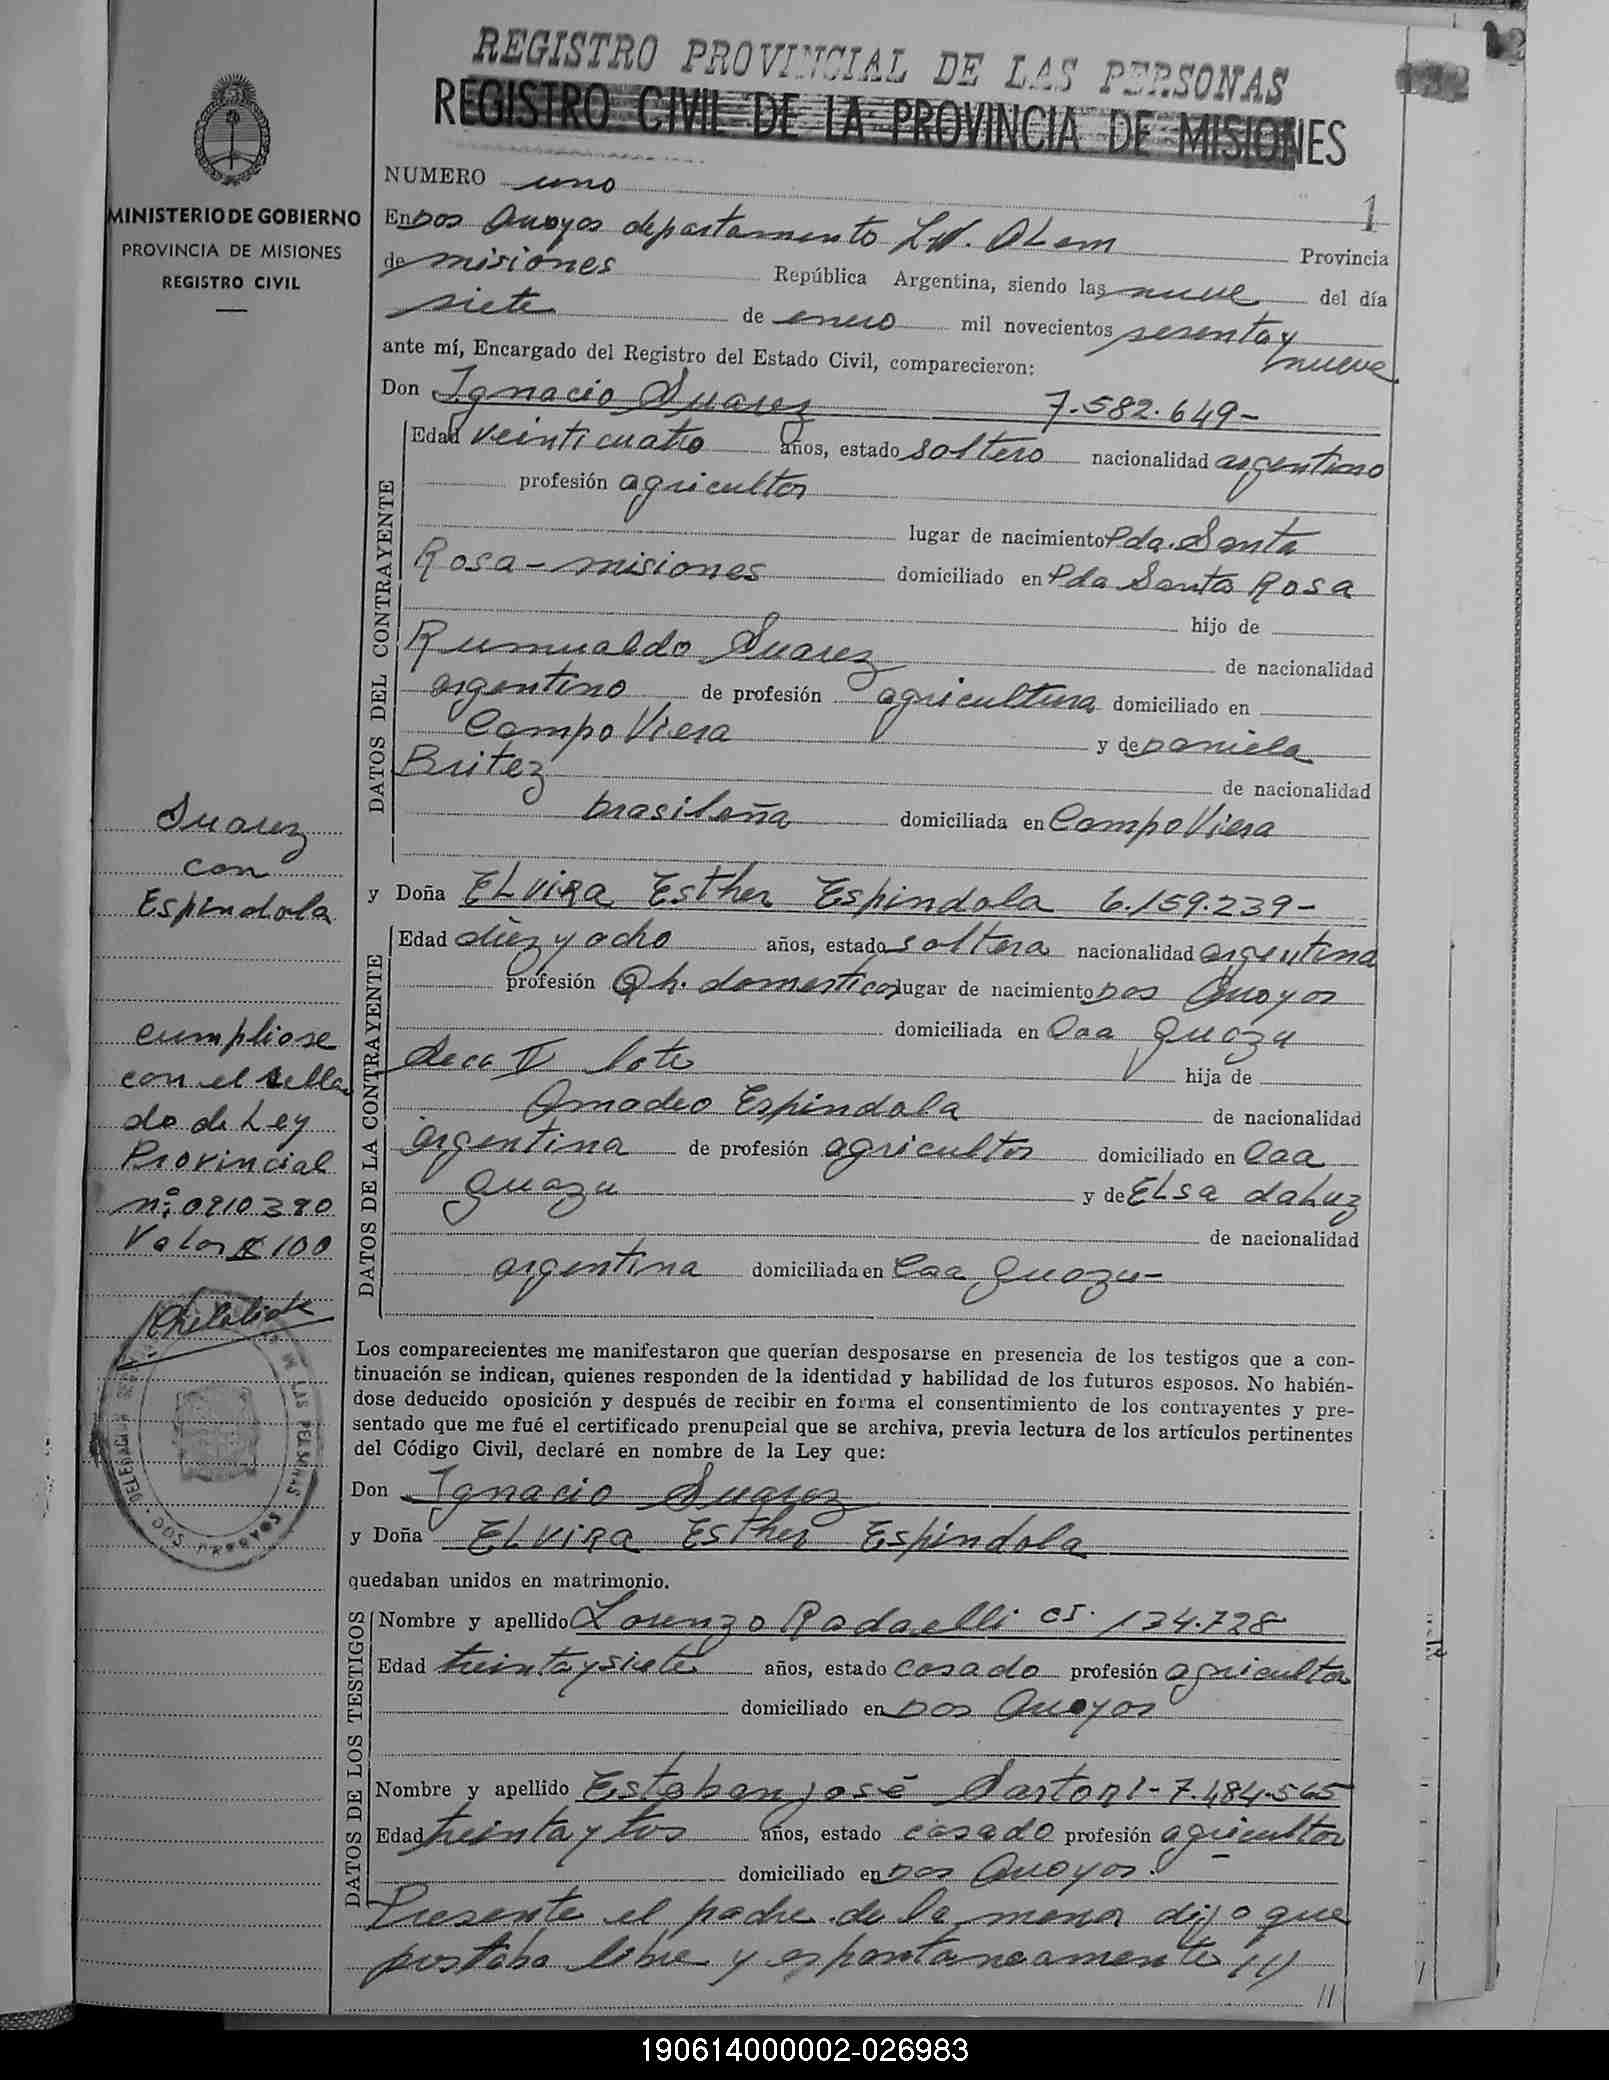 REGISTRO PROVINCIAL DE LAS PERSONAS
REGISTRO CIVIL DE LA PROVINCIA DE MISIONES
MINISTERIO DE GOBIERNO
PROVINCIA DE MISIONES
REGISTRO CIVIL
NUMERO uno
1
En Dos Arroyos departamento L.N. Alem Provincia
de misiones República Argentina, siendo las nueve del día
siete de enero mil novecientos sesenta y
nueve
ante mí, Encargado del Registro del Estado Civil, comparecieron:
Don Ignacio Suarez 7.582.649-
DATOS DEL CONTRAYENTE
Edad veinticuatro años, estado soltero nacionalidad argentino
profesión agricultor
lugar de nacimiento Pda. Santa
Rosa-misiones domiciliado en Pda Santa Rosa
hijo de
Rumualdo Suarez de nacionalidad
argentino de profesión agricultura domiciliado en
Campo Viera y de Daniela
Britez de nacionalidad
brasileña domiciliada en Campo Viera
Suarez
con
Espindola
y Doña Elvira Esther Espindola 6.159.239-
DATOS DE LA CONTRAYENTE
Edad diez y ocho años, estado soltera nacionalidad argentina
profesión Qh. domesticos lugar de nacimiento Dos Arroyos
domiciliada en Caa Guazu
Secc IV lote hija de
Amadeo Espindola de nacionalidad
argentina de profesión agricultor domiciliado en Caa
Guazu y de Elsa daLuz
de nacionalidad
argentina domiciliada en Caa Guazu-
cumpliose
con el sella
do de Ley
Provincial
nº: 0910390
Valor $ 100
DOS ARROYOS
Los comparecientes me manifestaron que querían desposarse en presencia de los testigos que a con-
tinuación se indican, quienes responden de la identidad y habilidad de los futuros esposos. No habién-
dose deducido oposición y después de recibir en forma el consentimiento de los contrayentes y pre-
sentado que me fué el certificado prenupcial que se archiva, previa lectura de los artículos pertinentes
del Código Civil, declaré en nombre de la Ley que:
Don Ignacio Suarez
y Doña Elvira Esther Espindola
quedaban unidos en matrimonio.
DATOS DE LOS TESTIGOS
Nombre y apellido Lorenzo Radaelli cs. 134.728
Edad treinta y siete años, estado casado profesión agricultor
domiciliado en Dos Arroyos
Nombre y apellido Esteban José Sartori-7.484.565
Edad treinta y tos años, estado casado profesión agricultor
domiciliado en Dos Arroyos.
Presente el padre de la menor dijo que
prestaba libre y espontaneamente //)
//
190614000002-026983